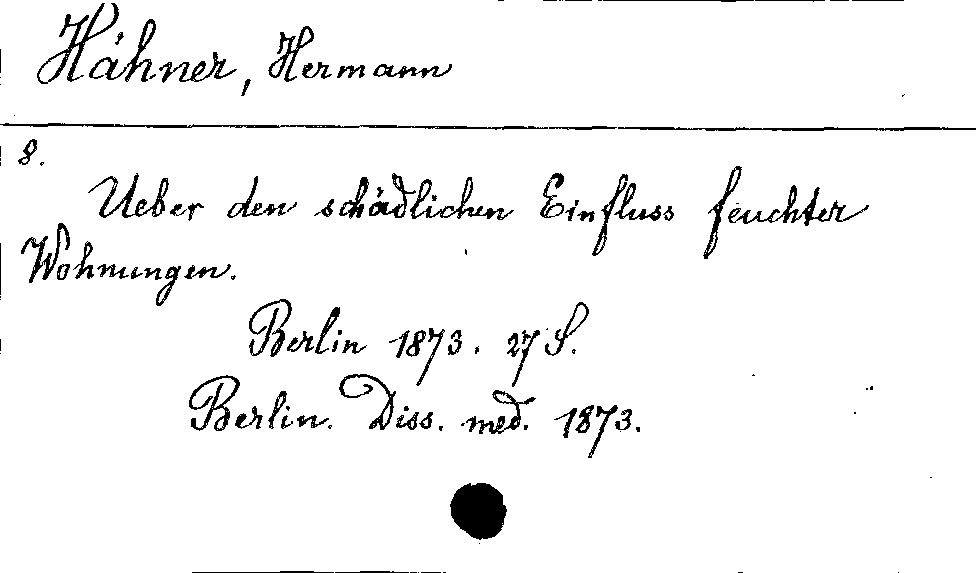 Hähner, Hermann
8.
Ueber den schädlichen Einfluss feuchter
Wohnungen.
Berlin 1873. 27 S.
Berlin. Diss. med. 1873.